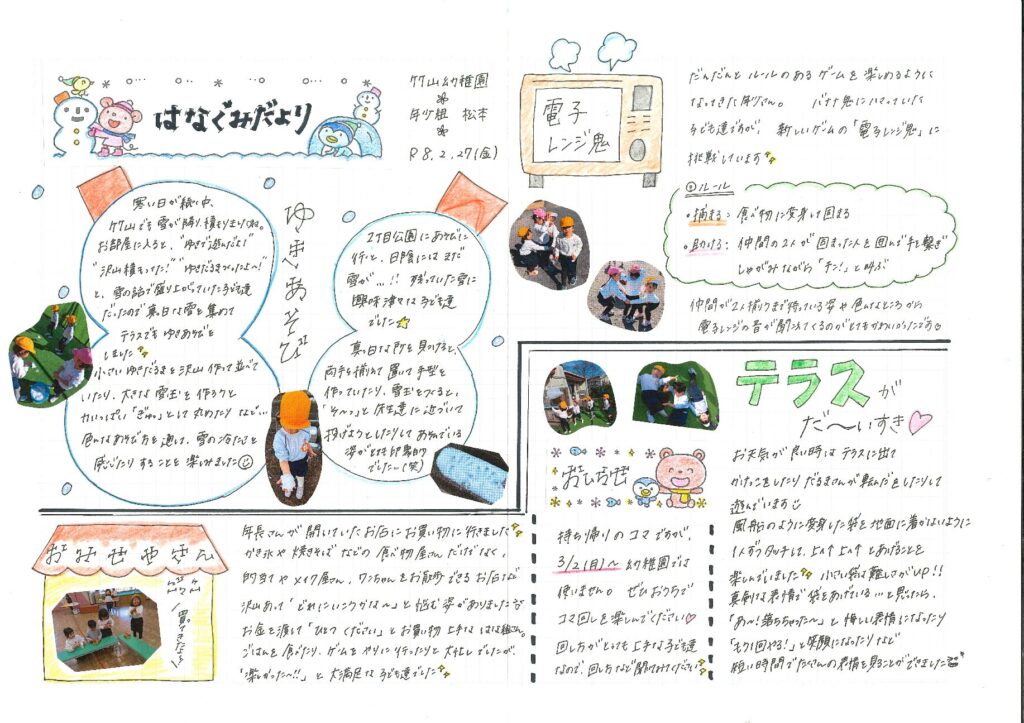 はなぐみだより
竹山幼稚園
年少組 松本
R8.2.27(金)
ゆきあそび
寒い日が続く中、
竹山でも雪が降り積もりましたね。
お部屋に入ると、"ゆきで遊んだよ!"
"沢山積もってた!" "ゆきだるまつくったよ〜!"
と、雪の話で盛り上がっていた子ども達
だったので真っ白な雪を集めて
テラスでもゆきあそびを
しました
小さいゆきだるまを沢山作って並べて
いたり、大きな雪玉を作ろうと
力いっぱい「ぎゅっ」として丸めたりなど…
色んなあそび方を通して、雪の冷たさを
感じたりすることを楽しみました
2丁目公園にあそびに
行くと、日陰にはまだ
雪が…!! 残っていた雪に
興味津々な子ども達
でした
真っ白な所を見つけると、
両手を揃えて置いて手型を
作っていたり、雪玉をつくると、
「そ〜っ」と先生達に近づいて
投げようとしたりしてあそんでいる
姿がとても印象的
でした〜(笑)
電子
レンジ鬼
だんだんとルールのあるゲームを楽しめるように
なってきた年少さん。 バナナ鬼にハマっていた
子ども達ですが、新しいゲームの「電子レンジ鬼」に
挑戦しています
ルール
・捕まる:食べ物に変身して固まる
・助ける:仲間の2人が固まった人を囲んで手を繋ぎ
しゃがみながら「チン!」と叫ぶ
仲間が2人揃うまで待っている姿や色んなところから
電子レンジの音が聞こえてくるのがとてもかわいかったです
おみせやさん
買ってきたよ〜
年長さんが開いていたお店にお買い物に行きました
かき氷や焼きそばなどの食べ物屋さんだけでなく、
的当てやメイク屋さん、ワンちゃんをお散歩できるお店など
沢山あって「どれにいこうかな〜」と悩む姿がありましたが
お金を渡して「ひとつください」とお買い物上手なはな組さん。
ごはんを食べたり、ゲームをやりに行ったりと大忙しでしたが、
「楽しかった〜!!」と大満足な子ども達でした
おしらせ
持ち帰りのコマですが、
3/2(月)〜幼稚園では
使いません。ぜひおうちで
コマ回しを楽しんでください
回し方がとっても上手な子ども達
なので、回し方など聞いてみてください
テラスが
だ〜いすき
お天気が良い時はテラスに出て
かけっこをしたりだるまさんが転んだをしたりして
遊んでいます
風船のように変身した袋を地面に着かないように
1人ずつタッチして、上へ上へとあげることを
楽しんでいました 小さい袋は難しさがUP!!
真剣な表情で袋をあげている…と思ったら、
「あ〜!落ちちゃった〜」と悔しい表情になったり
「もう1回やる!」と笑顔になったりなど
短い時間でたくさんの表情を見ることができました